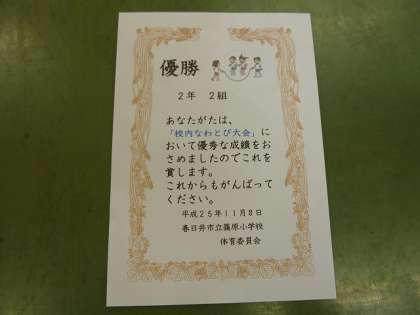 優勝
２年 ２組
あなたがたは、
「校内なわとび大会」に
おいて優秀な成績をお
さめましたのでこれを
賞します。
これからもがんばって
ください。
平成２５年１１月８日
春日井市立篠原小学校
体育委員会